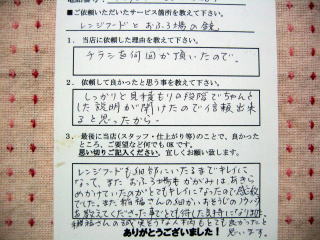 ■ご依頼いただいたサービス箇所を教えて下さい。
レンジフードとおふろ場の鏡
1. 当店に依頼した理由を教えて下さい。
チラシを何回か頂いたので。
2. 依頼して良かったと思う事を教えて下さい。
しっかりと見積もりの段階でちゃんとした
説明が聞けたので信頼出来
ると思ったから。
3. 最後に当店(スタッフ・仕上がり等)のことで、良かった
ところ、ご要望など何でもOKです。
思い切りご記入ください。宜しくお願い致します。
レンジフードも細部にいたるまでキレイに
なって、また おふろ場も かがみは あきら
めかけていたのがとてもキレイになったので感激
でした。また
を教えてくださった事でとても得した気持ちになりました
ありがとうございました!
思います。